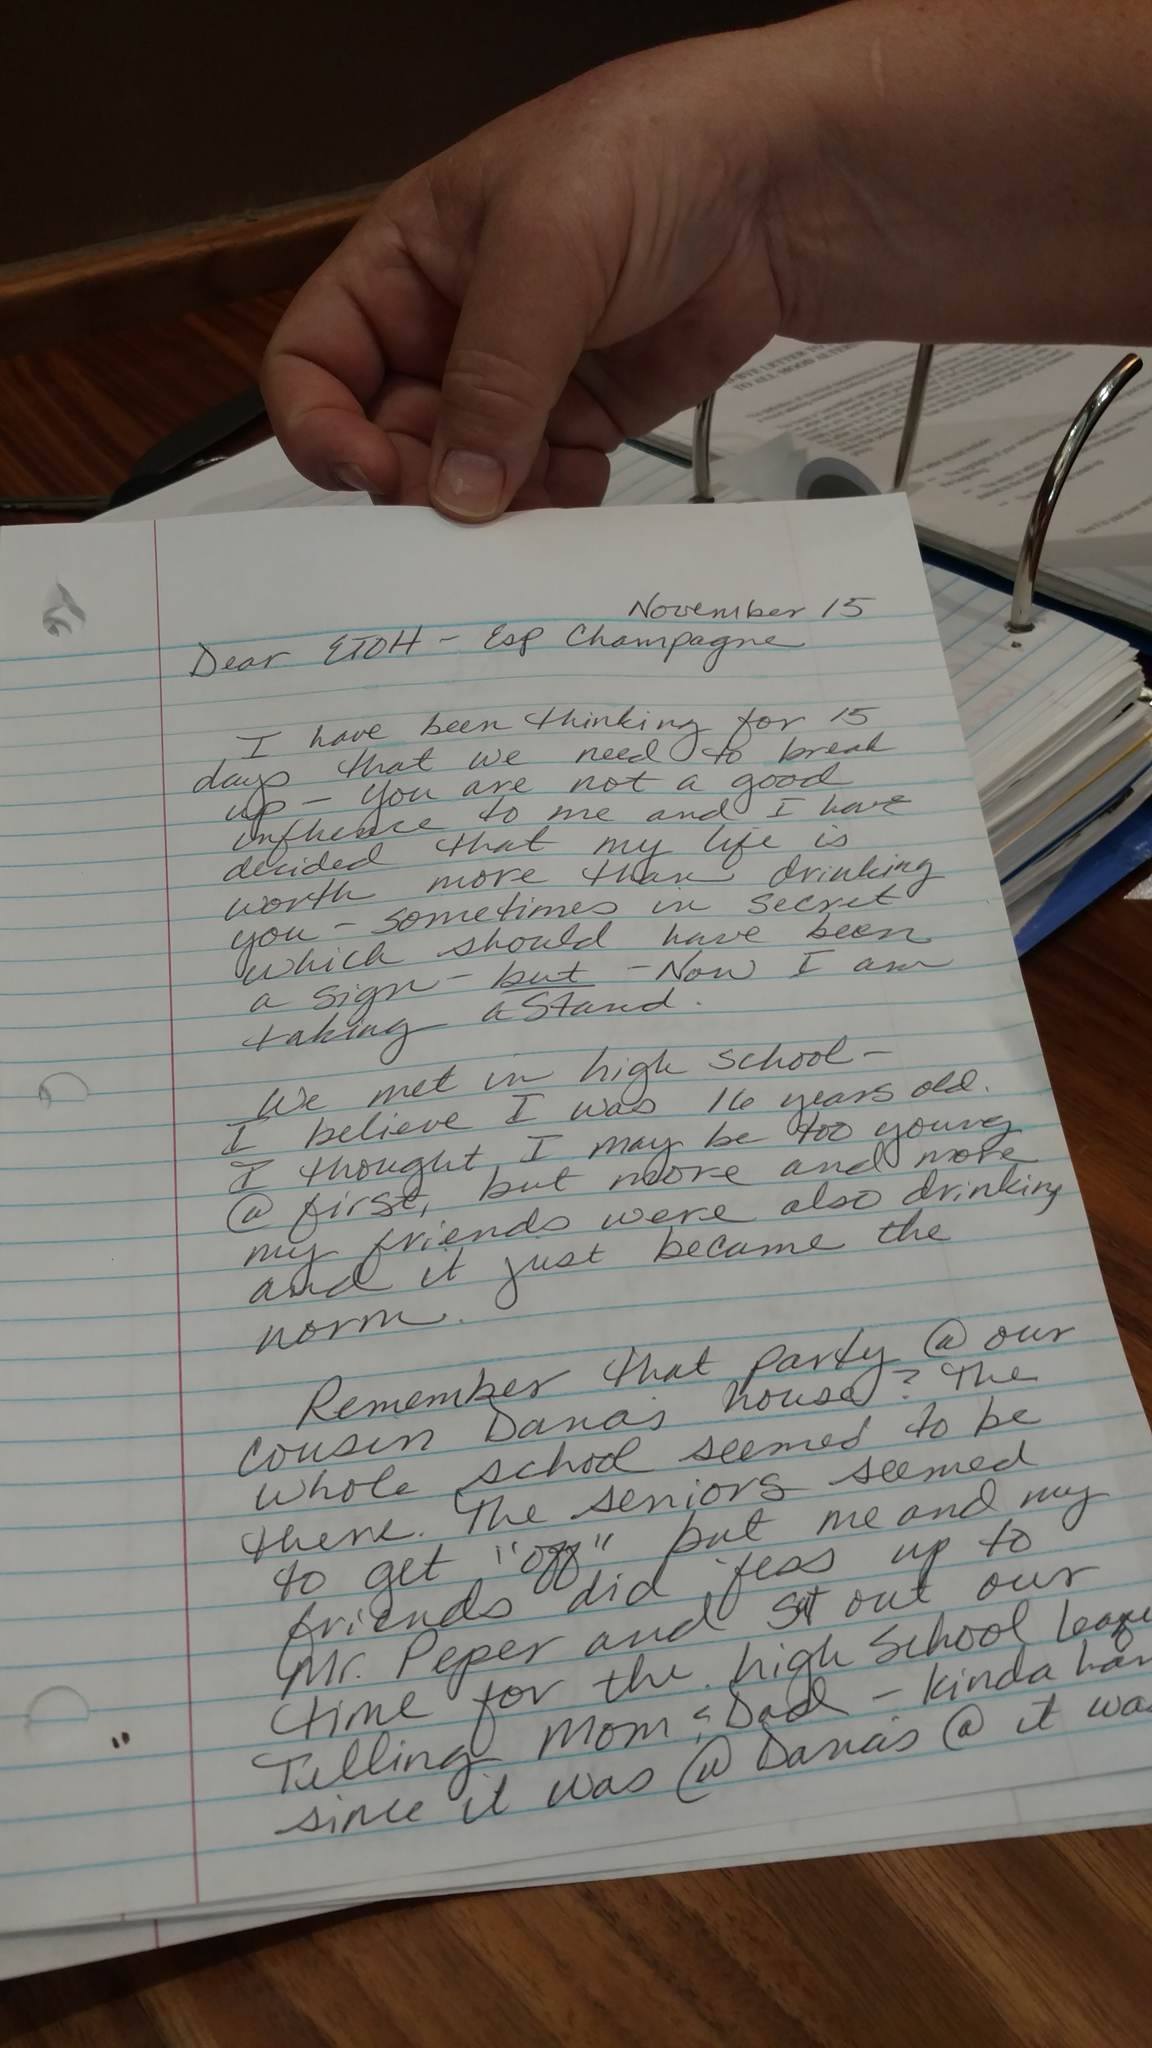 LETTER TO
TO ALL MOOD ALTER
November 15
Dear ETOH - Esp Champagne
I have been thinking for 15
days that we need to break
up - you are not a good
influence to me and I have
decided that my life is
worth more than drinking
you - sometimes in secret
which should have been
a sign - but - Now I am
taking a Stand.
We met in high school -
I believe I was 16 years old.
I thought I may be too young
@ first, but more and more
my friends were also drinking
and it just became the
norm.
Remember that party @ our
cousin Dana's house? The
whole school seemed to be
there. The seniors seemed
to get "off" but me and my
friends did 'fess up to
Mr. Peper and sit out our
time for the high school league
Telling Mom & Dad - kinda har
since it was @ Dana's @ it was